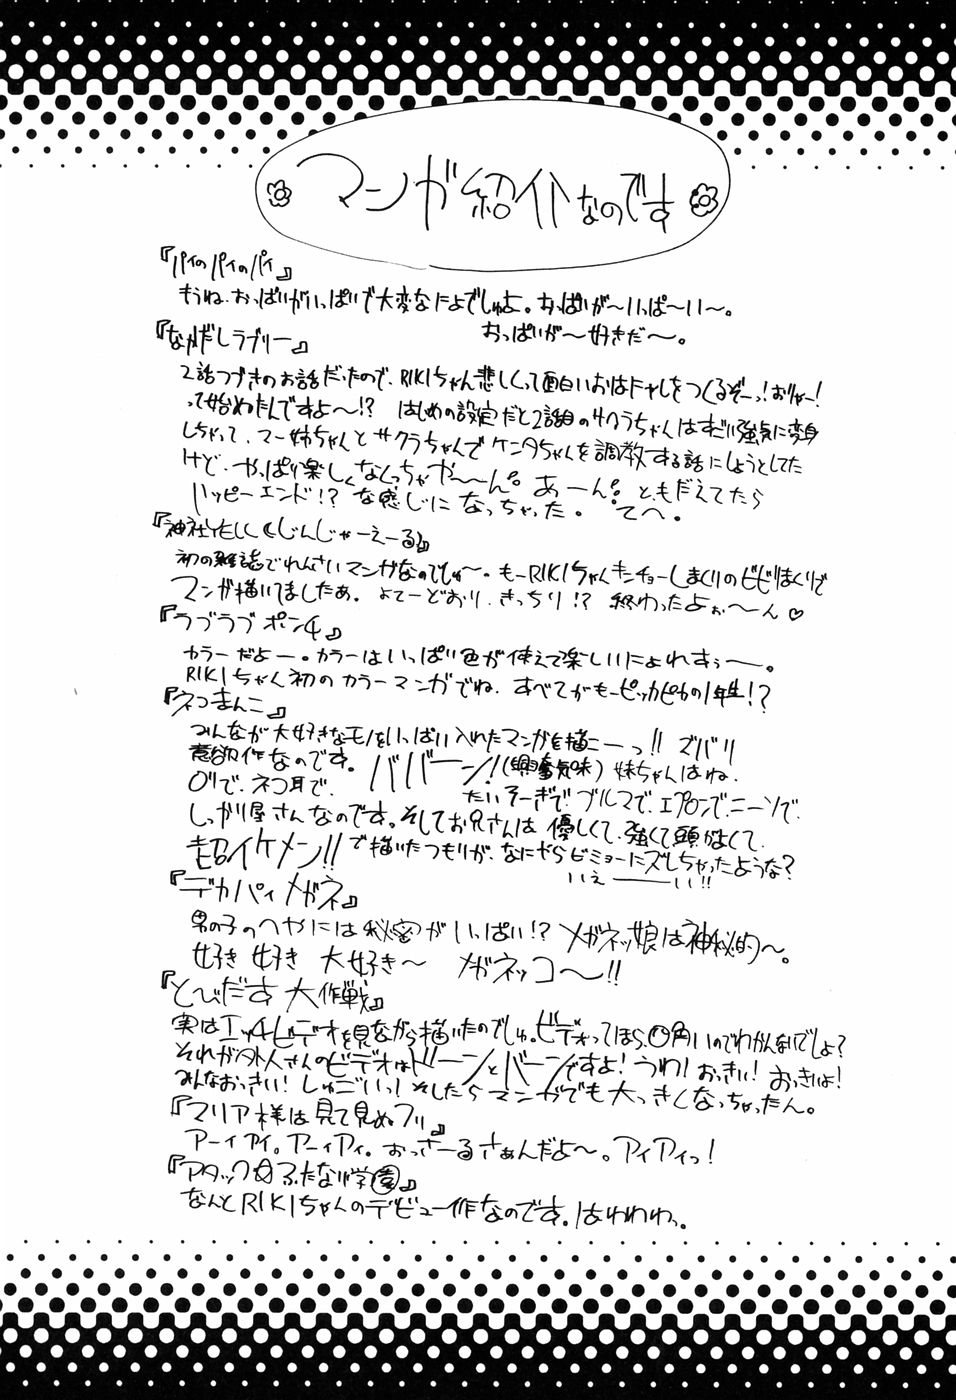 マンガ紹介なのです
『パイのパイのパイ』
もうね、おっぱいがいっぱいで大変なによでしゅよ。おっぱいが〜いっぱ〜い〜。
おっぱいが〜好きだ〜。
『なかだしラブリー』
2話つづきのお話だったので、RIKIちゃん悲しくって面白いおはなしをつくるぞーっ!おりゃー!
って始めたんですよ〜!? はじめの設定だと2話目のサクラちゃんはすごい強気に変身
しちゃって、マー姉ちゃんとサクラちゃんでケンタちゃんを調教する話にしようとしてた
けど、やっぱり楽しくなくっちゃや〜〜ん。あーん。ともだえてたら
ハッピーエンド!? な感じになっちゃった。てへ。
『神社ILL くじんじゃーえーる』
初の雑誌でれんさいマンガなのでしゅ〜。もーRIKIちゃんキンチョーしまくりのビビりまくりで
マンガ描いてましたぁ。よてーどおり、きっちり!? 終わったよぉ〜ん♡
『ラブラブポン4』
カラーだよー。カラーはいっぱい色が使えて楽しいにょれすぅー。
RIKIちゃん初のカラーマンガでね、すべてがもーピッカピカの1年生!?
『ネコまんこ』
みんなが大好きなモノをいっぱい入れたマンガを描こーっ!! ズバリ
意欲作なのです。ババーン!(興奮気味) 妹ちゃんはね、
ロリで、ネコ耳で、たいそーぎで、ブルマで、エプロンで、ニーソで、
しっかり屋さんなのです。そしてお兄さんは優しくて、強くて頭がよくて、
超イケメン!!で描いたつもりが、なにやらビミョーにズレちゃったような?
いぇ──い!!
『デカパイメガネ』
男の子のへやには秘密がいっぱい!? メガネッ娘は神秘的〜。
好き 好き 大好き〜 メガネッコ〜!!
『とびだす大作戦』
実はエッチビデオを見ながら描いたのでしゅ。ビデオってほら、○角いのでわかんないでしょ?
それが外人さんのビデオはドーンとバーンですよ!うわ!おっきい!おっきいよ!
みんなおっきい!しゅごいっ!そしたらマンガでも大っきくなっちゃったん。
『マリア様は見て見ぬフリ』
アーイアイ。アーイアイ。おっさーるさぁんだよ〜。アイアイっ!
『アタック☆ふたなり学園』
なんとRIKIちゃんのデビュー作なのです。はわわわっ。